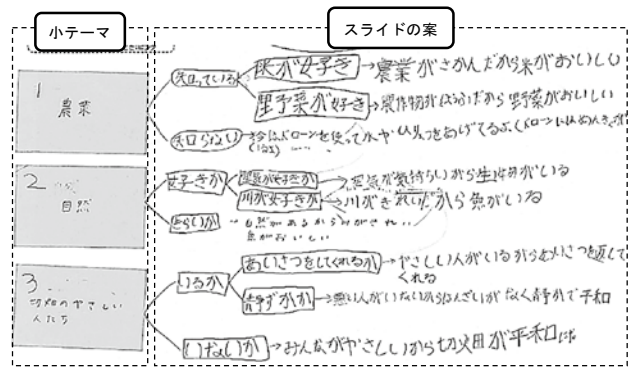 小テーマ
スライドの案
1
農業
知っている
米が好き→農業がさかんだから米がおいしい
野菜が好き→農作物がほうふだから野菜がおいしい
知らない→今はドローンを使って水や
2
自然
好きか
空気が好きか→空気が気持ちいいから生き物がいる
川が好きか→川がきれいだから魚がいる
きらいか→自然があるから
魚がおいしい
3
やさしい
人たち
いるか
あいさつをしてくれるか→やさしい人がいるからあいさつを返して
くれる
静ずかか→悪い人がいないからはんざいがなく静かで平和
いないか→みんながやさしいから 平和に